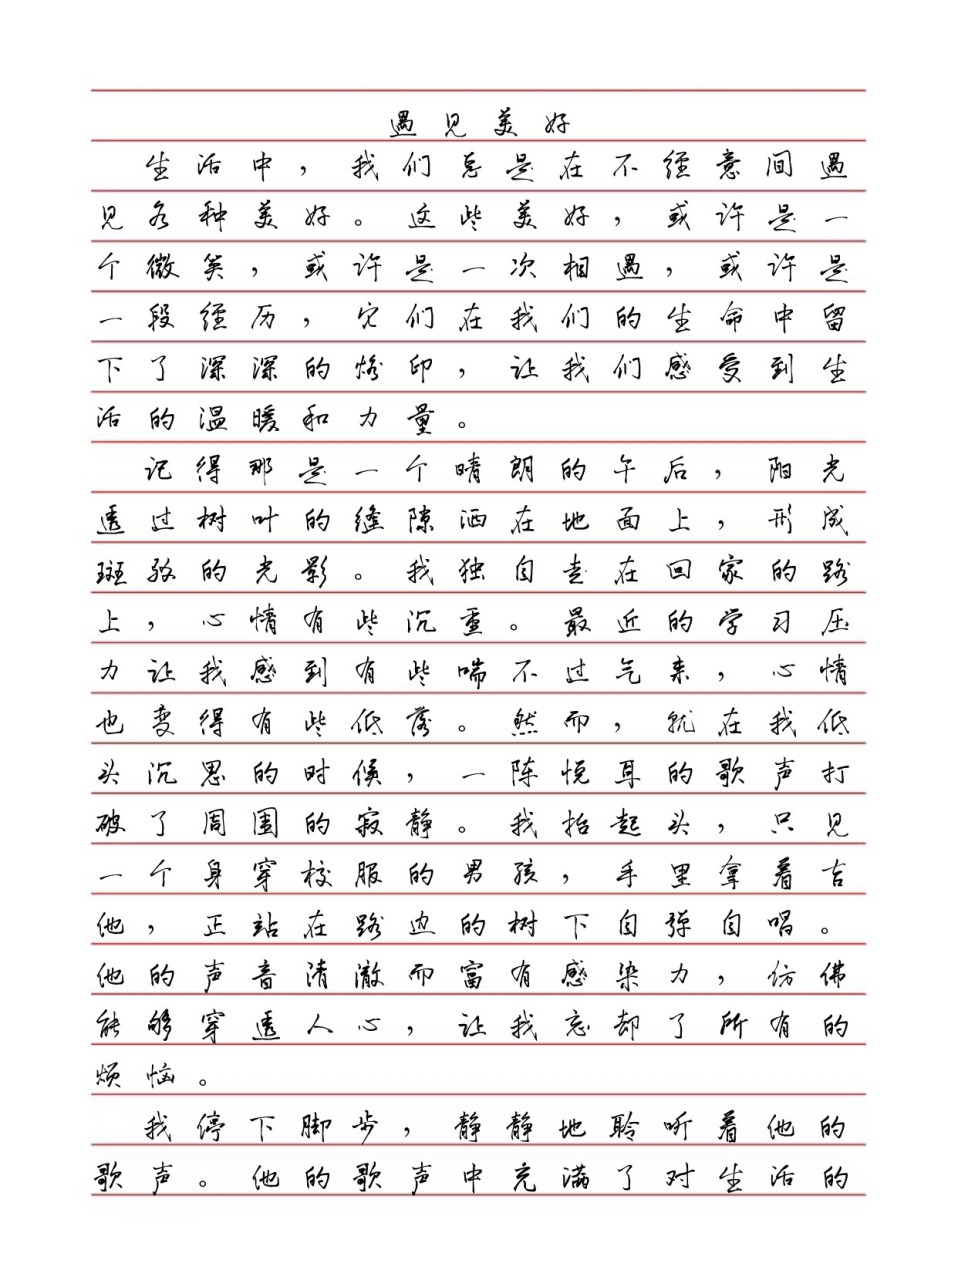 遇见美好
生活中，我们总是在不经意间遇
见各种美好。这些美好，或许是一
个微笑，或许是一次相遇，或许是
一段经历，它们在我们的生命中留
下了深深的烙印，让我们感受到生
活的温暖和力量。
记得那是一个晴朗的午后，阳光
透过树叶的缝隙洒在地面上，形成
斑驳的光影。我独自走在回家的路
上，心情有些沉重。最近的学习压
力让我感到有些喘不过气来，心情
也变得有些低落。然而，就在我低
头沉思的时候，一阵悦耳的歌声打
破了周围的寂静。我抬起头，只见
一个身穿校服的男孩，手里拿着吉
他，正站在路边的树下自弹自唱。
他的声音清澈而富有感染力，仿佛
能够穿透人心，让我忘却了所有的
烦恼。
我停下脚步，静静地聆听着他的
歌声。他的歌声中充满了对生活的